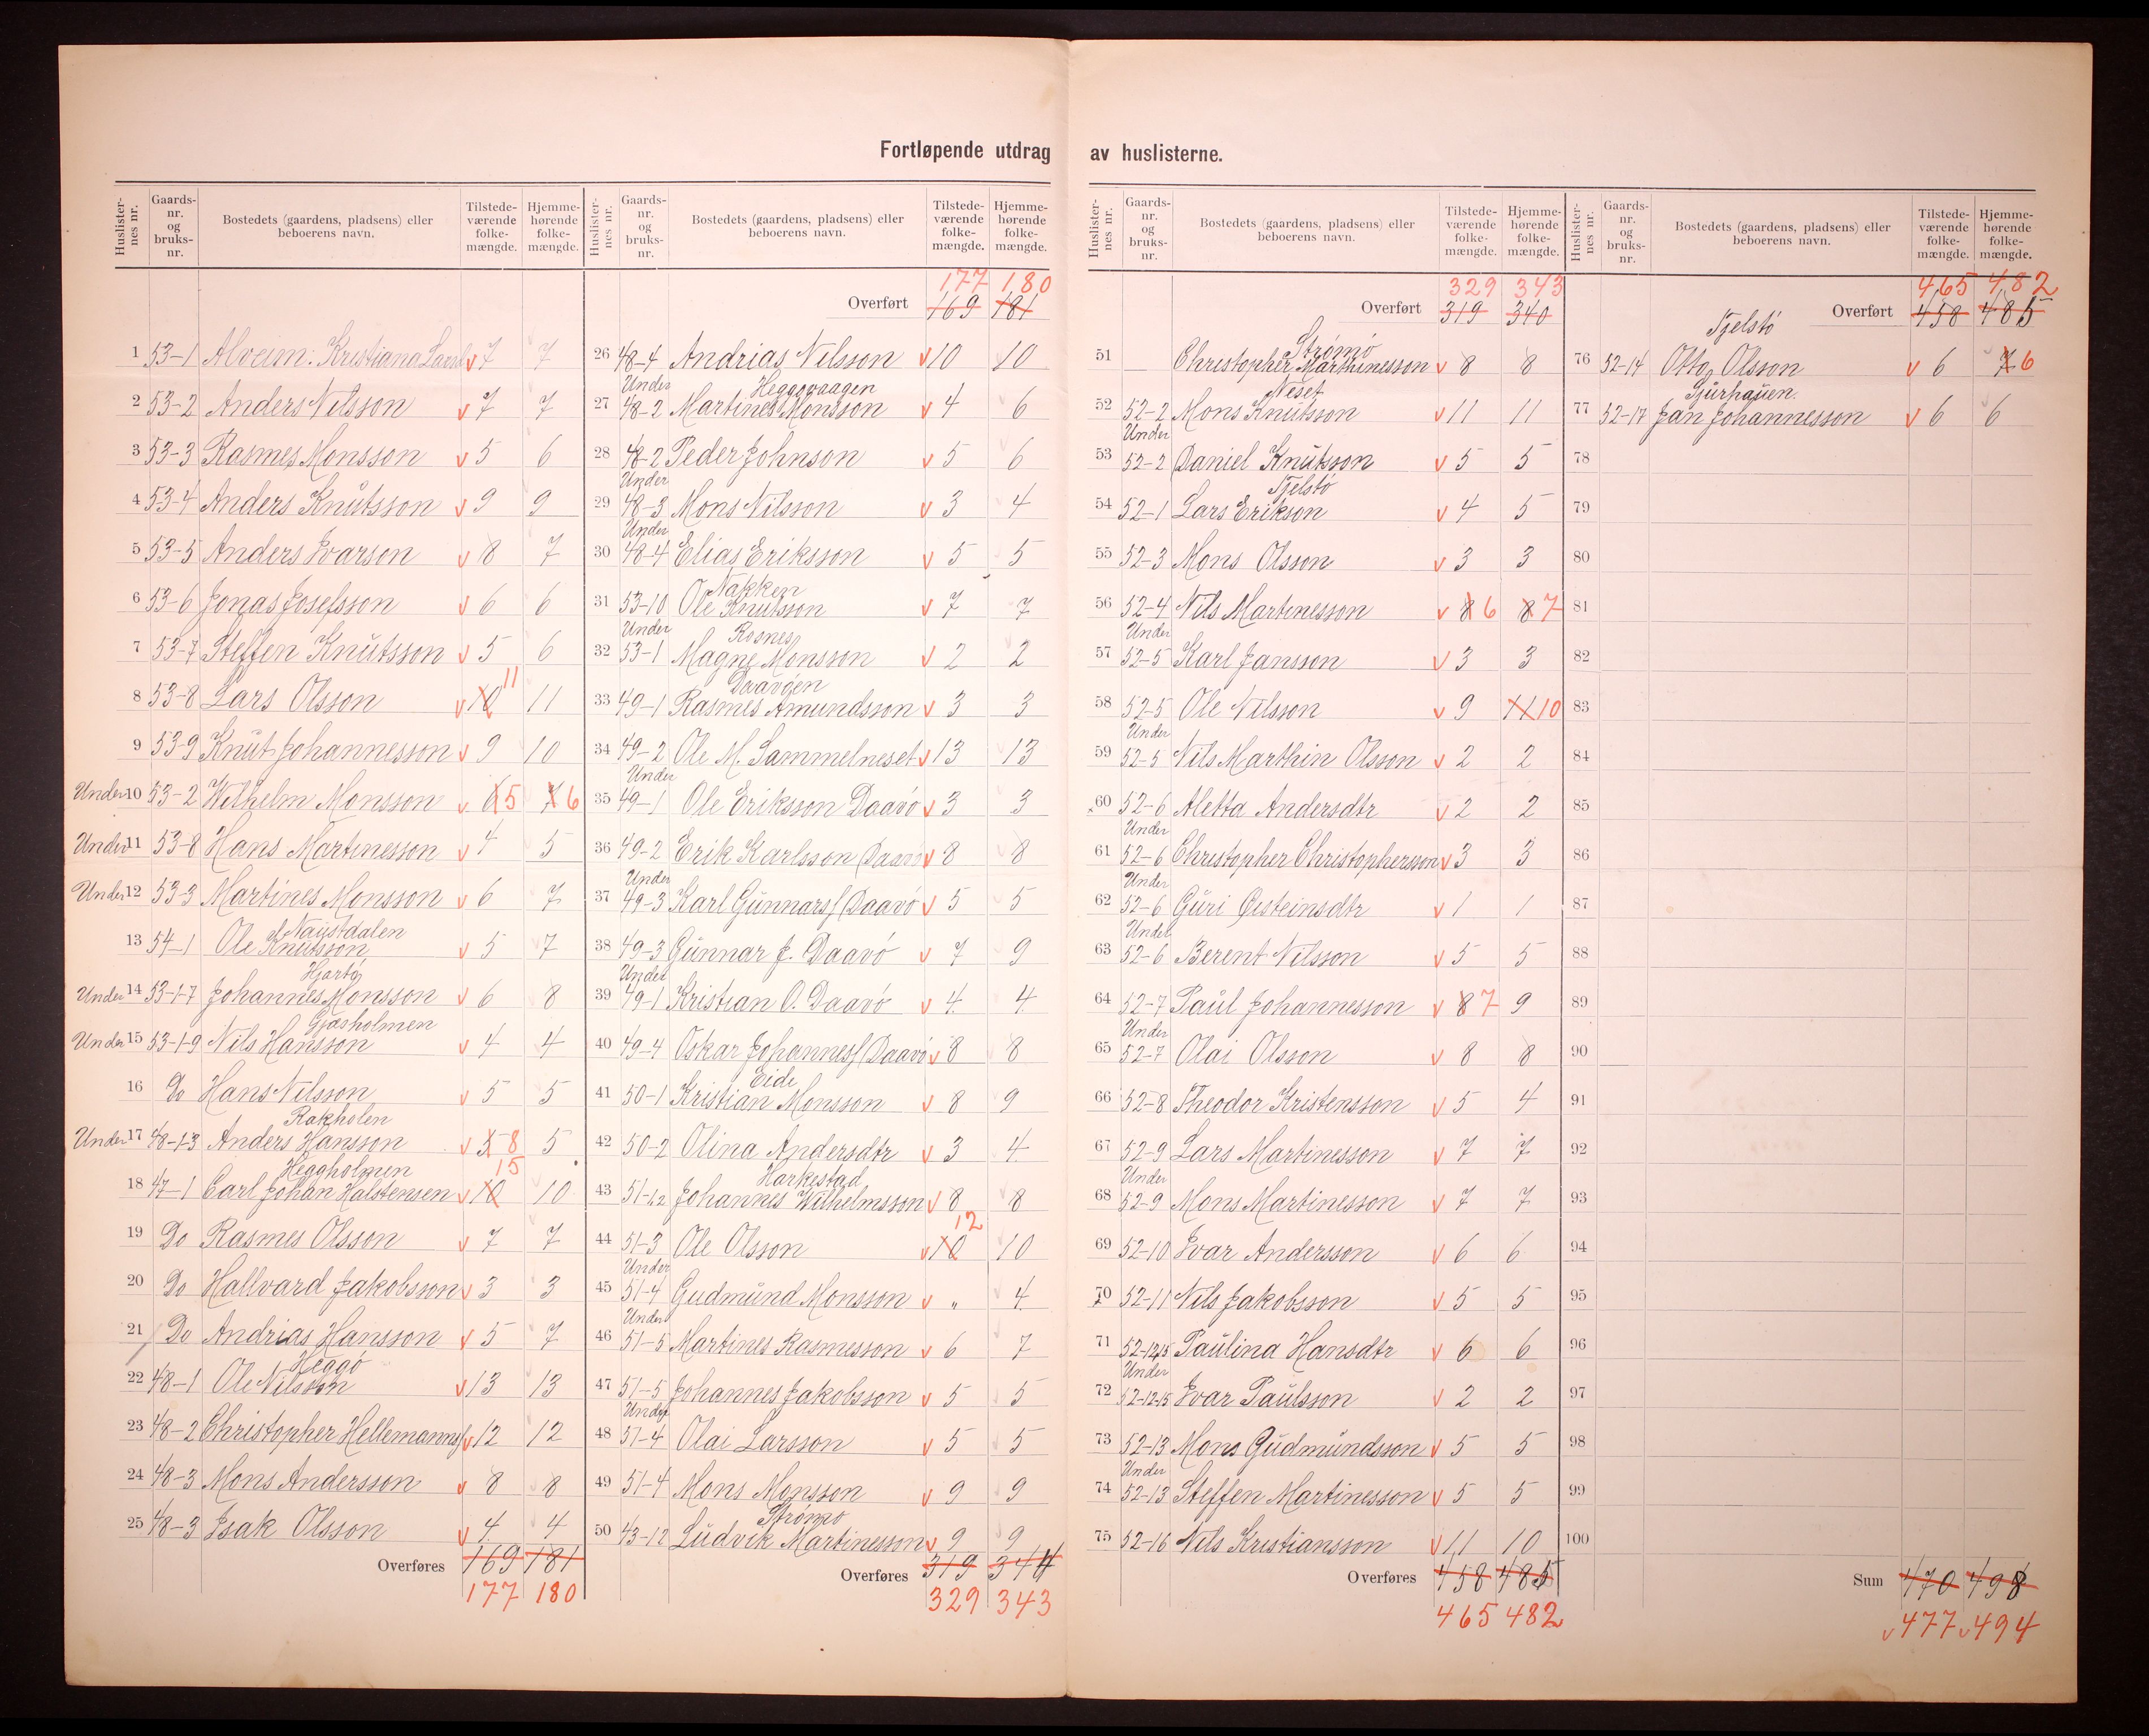 Fortløpende utdrag av huslisterne.
Huslister-nes nr. Gaards-nr. og bruks-nr. Bostedets (gaardens, pladsens) eller beboerens navn. Tilstede-værende folke-mængde. Hjemme-hørende folke-mængde.
1 53-1 Alveim: Kristiana v 7 7
2 53-2 Anders Nilsson v 7 7
3 53-3 Rasmes Monsson v 5 6
4 53-4 Anders Knutsson v 9 9
5 53-5 Anders Ivarson v 8 7
6 53-6 Jonas Josefsson v 6 6
7 53-7 Steffen Knutsson v 5 6
8 53-8 Lars Olsson v 10 11 11
9 53-9 Knut Johannesson v 9 10
Under 10 53-2 Wilhelm Monsson v 6 5 7 6
Under 11 53-8 Hans Martinesson v 4 5
Under 12 53-3 Martines Monsson v 6 7
Naustdalen
13 54-1 Ole Knutsson v 5 7
Hjartø
Under 14 53-1-7 Johannes Monsson v 6 8
Gjøsholmen
Under 15 53-1-9 Nils Hansson v 4 4
16 Do Hans Nilsson v 5 5
Rakholen
Under 17 48-1-3 Anders Hansson v 5 8 5
Heggholmen
18 47-1 Carl Johan Halstensen v 10 15 10
19 Do Rasmes Olsson v 7 7
20 Do Hallvard Jakobsson v 3 3
21 Do Andrias Hansson v 5 7
Heggø
22 48-1 Ole Nilsson v 13 13
23 48-2 Christopher Hellemanns v 12 12
24 48-3 Mons Andersson v 8 8
25 48-3 Isak Olsson v 4 4
Overføres 169 181
177 180
Huslister-nes nr. Gaards-nr. og bruks-nr. Bostedets (gaardens, pladsens) eller beboerens navn. Tilstede-værende folke-mængde. Hjemme-hørende folke-mængde.
177 180
Overført 169 181
26 48-4 Andrias Nilsson v 10 10
Under Heggøvaagen
27 48-2 Martines Monsson v 4 6
28 48-2 Peder Johnson v 5 6
Under
29 48-3 Mons Nilsson v 3 4
Under
30 48-4 Elias Eriksson v 5 5
Nakken
31 53-10 Ole Knutsson v 7 7
Under Rosnes
32 53-1 Magne Monsson v 2 2
Daavøen
33 49-1 Rasmes Amundsson v 3 3
34 49-2 Ole M. Sammelneset v 13 13
Under
35 49-1 Ole Eriksson Daavø v 3 3
36 49-2 Erik Karlsson Daavø v 8 8
Under
37 49-3 Karl Gunnars Daavø v 5 5
38 49-3 Gunnar J. Daavø v 7 9
Under
39 49-1 Kristian O. Daavø v 4 4
40 49-4 Oskar Johannes Daavø v 8 8
Eide
41 50-1 Kristian Monsson v 8 9
42 50-2 Olina Andersdtr v 3 4
Harkestad
43 51-1,2 Johannes Wilhelmsson v 8 8
44 51-3 Ole Olsson v 10 12 10
Under
45 51-4 Gudmund Monsson v " 4
Under
46 51-5 Martines Rasmesson v 6 7
47 51-5 Johannes Jakobsson v 5 5
Under
48 51-4 Olai Larsson v 5 5
49 51-4 Mons Monsson v 9 9
Strømø
50 43-12 Ludvik Martinesson v 9 9
Overføres 319 344
329 343
Huslister-nes nr. Gaards-nr. og bruks-nr. Bostedets (gaardens, pladsens) eller beboerens navn. Tilstede-værende folke-mængde. Hjemme-hørende folke-mængde.
329 343
Overført 319 340
Strømø
51 — Christopher Marthinesson v 8 8
Neset
52 52-2 Mons Knutsson v 11 11
Under
53 52-2 Daniel Knutsson v 5 5
Tjelstø
54 52-1 Lars Erikson v 4 5
55 52-3 Mons Olsson v 3 3
56 52-4 Nils Martinesson v 8 6 8 7
Under
57 52-5 Karl Jansson v 3 3
58 52-5 Ole Nilsson v 9 11 10
Under
59 52-5 Nils Marthin Olsson v 2 2
60 52-6 Aletta Andersdtr v 2 2
Under
61 52-6 Christopher Christophersson v 3 3
Under
62 52-6 Guri Øisteinsdtr v 1 1
Under
63 52-6 Berent Nilsson v 5 5
64 52-7 Paul Johannesson v 8 7 9
Under
65 52-7 Olai Olsson v 8 8
66 52-8 Theodor Kristensson v 5 4
67 52-9 Lars Martinesson v 7 7
Under
68 52-9 Mons Martinesson v 7 7
69 52-10 Ivar Andersson v 6 6
70 52-11 Nils Jakobsson v 5 5
71 52-12,15 Paulina Hansdtr v 6 6
Under
72 52-12-15 Ivar Paulsson v 2 2
73 52-13 Mons Gudmundsson v 5 5
Under
74 52-13 Steffen Martinesson v 5 5
75 52-16 Nils Kristiansson v 11 10
Overføres 458 485
465 482
Huslister-nes nr. Gaards-nr. og bruks-nr. Bostedets (gaardens, pladsens) eller beboerens navn. Tilstede-værende folke-mængde. Hjemme-hørende folke-mængde.
465 482
Overført 458 485
Tjelstø
76 52-14 Otto Olsson v 6 7 6
Sjurhauen.
77 52-17 Jan Johannesson v 6 6
78
79
80
81
82
83
84
85
86
87
88
89
90
91
92
93
94
95
96
97
98
99
100
Sum 470 498
v 477 v 494